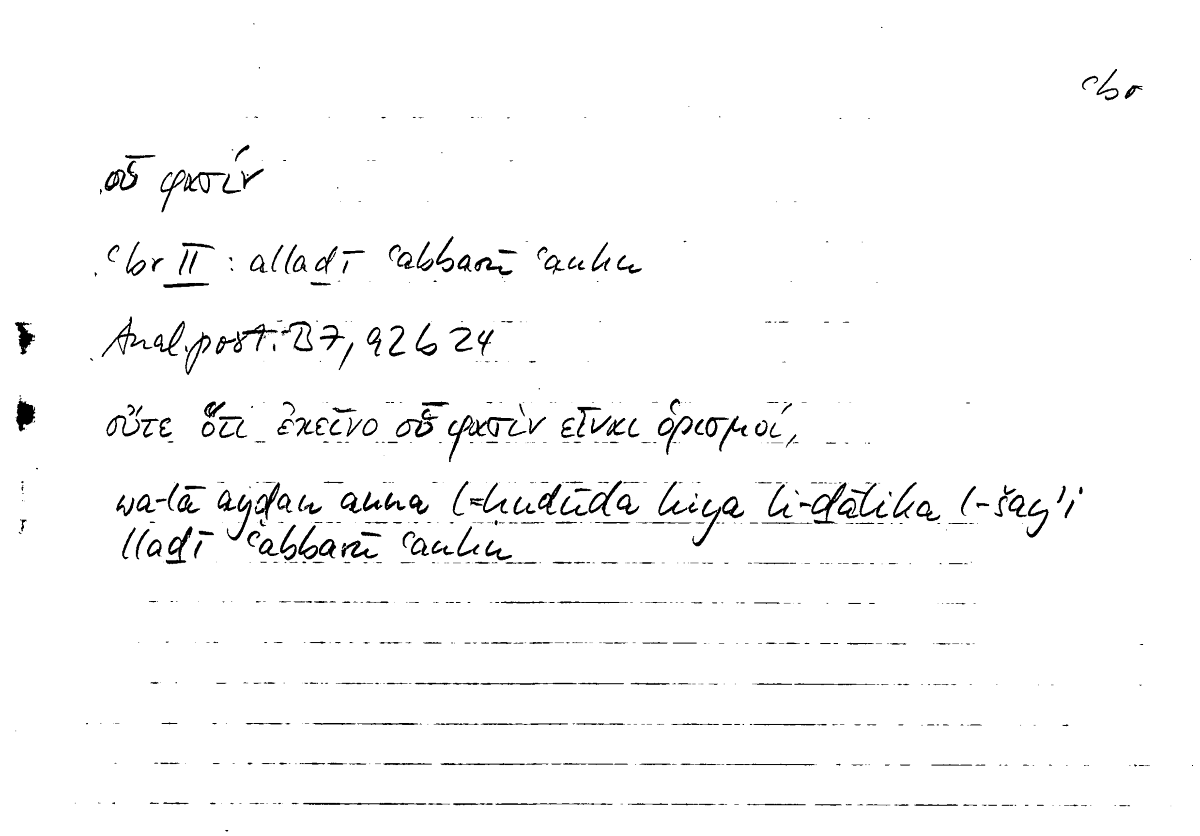 ʿbr
οὗ φασίν
ʿbr II : allaḏī ʿabbarū ʿanhu
Anal. post. B7, 92b24
οὔτε ὅτι ἐκεῖνο οὗ φασὶν εἶναι ὁρισμοί,
wa-lā ayḍan anna l-ḥudūda hiya li-ḏālika l-šayʾi
llaḏī ʿabbarū ʿanhu